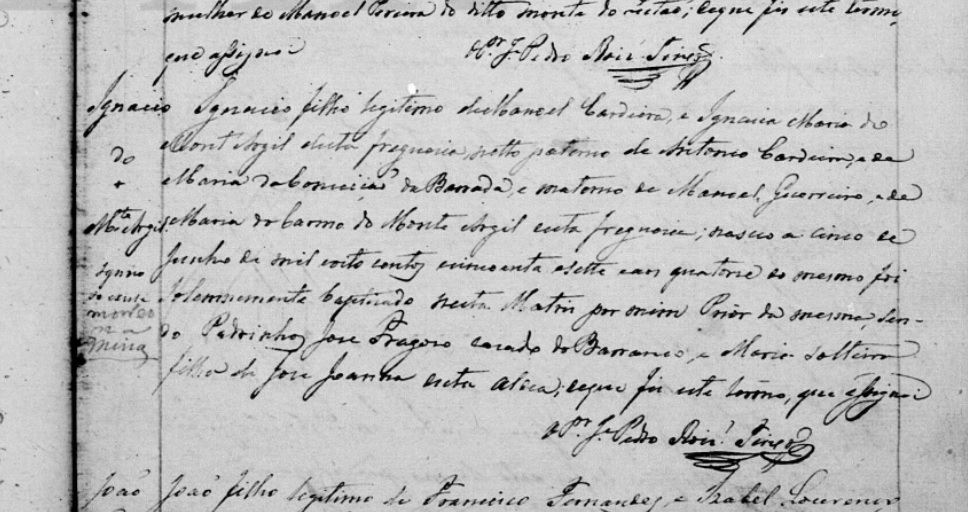 mulher de Manoel Pereira do ditto monte do ; de que fiz este termo,
que assignei
O P.or J.e Pedro Roiz
Ignacio
do
Mte Argil
Ignacio filho legitimo de Manoel Cardeira, e Ignacia Maria do
Mont'Argil desta freguesia, netto paterno de Antonio Cardeira, e de
Maria da Conceição da Barrada, e materno de Manoel Guerreiro, e de
Maria do Carmo do Monte Argil desta freguesia; nasceo a cinco de
Junho de mil oito centos cincoenta e sette e aos quatorze do mesmo foi
solemnemente baptizado nesta Matriz por mim Prior da mesma, sen-
do Padrinhos Jose Fragoso casado do Barranco, e Maria solteira
filha de Jose Joanna desta aldea; de que fiz este termo, que assignei
O P.or J.e Pedro Roiz
morreo
na
mina
João
João filho legitimo de Francisco Fernandes, e Izabel Lourenço